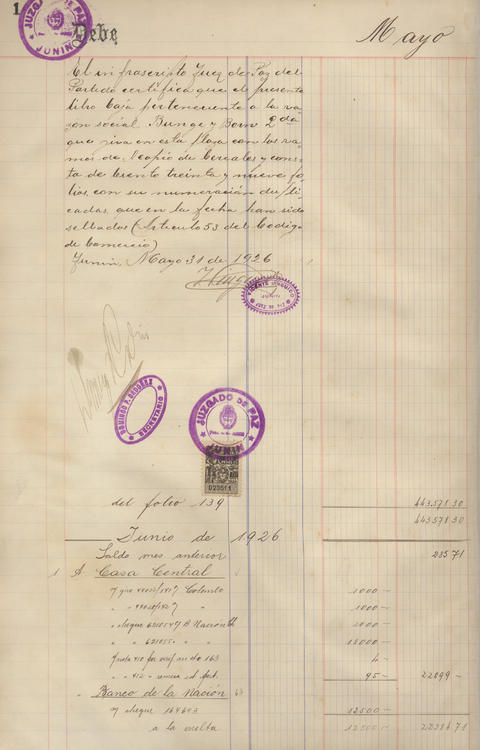 1
JUZGADO DE PAZ
JUNIN
Debe
Mayo
El infrascripto Juez de Paz del
Partido certifica que el presente
libro Caja perteneciente a la ra-
zón social Bunge y Born Ldª
que gira en esta plaza con los ra-
mos de Acopio de Cereales y cons-
ta de Ciento treinta y nueve fo-
lios, con su numeración dupli-
cadas, que en la fecha han sido
sellados (Artículo 53 del Código
de Comercio)
Junin, Mayo 31 de 1926
VICENTE
JUNIN
JUEZ DE PAZ
DOMINGO
SECRETARIO
JUZGADO DE PAZ
JUNIN
020511
del folio 139 443571 30
443571 30
Junio de 1926
Saldo mes anterior 235 71
1 A Casa Central
1000 -
1000 -
cheque Nación
18000 -
4 -
95 - 22099 -
" Banco de la Nación 63
n/ cheque 164643 12500 -
a la vuelta 12500 - 22336 71